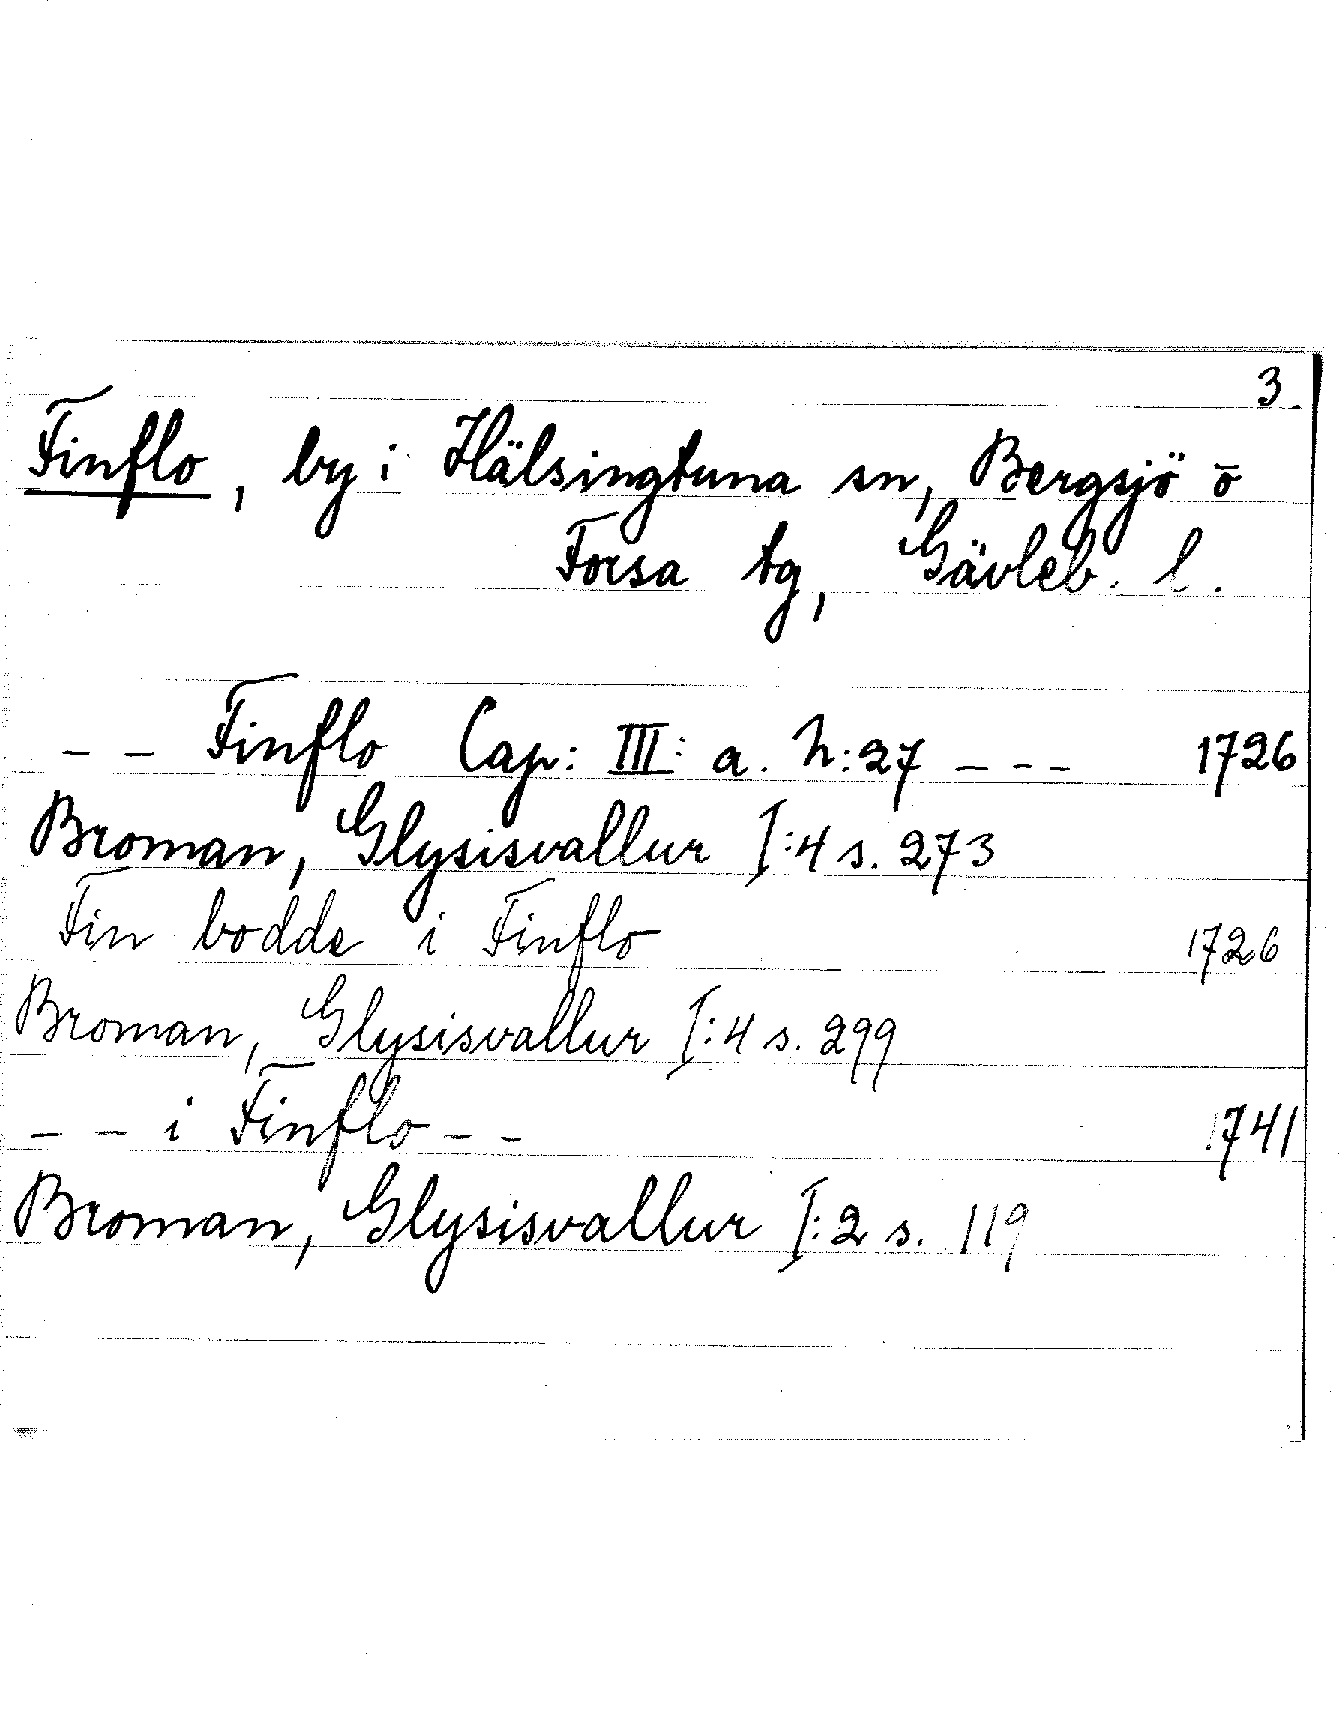 3
Finflo, by i Hälsingtuna sn, Bergsjö o
Forsa tg, Gävleb. l.
– – Finflo Cap: III: a. N:27 – – – 1726
Broman, Glysisvallur I:4 s. 273
Fin bodde i Finflo 1726
Broman, Glysisvallur I:4 s. 299
– – i Finflo – – 1741
Broman, Glysisvallur I:2 s. 119